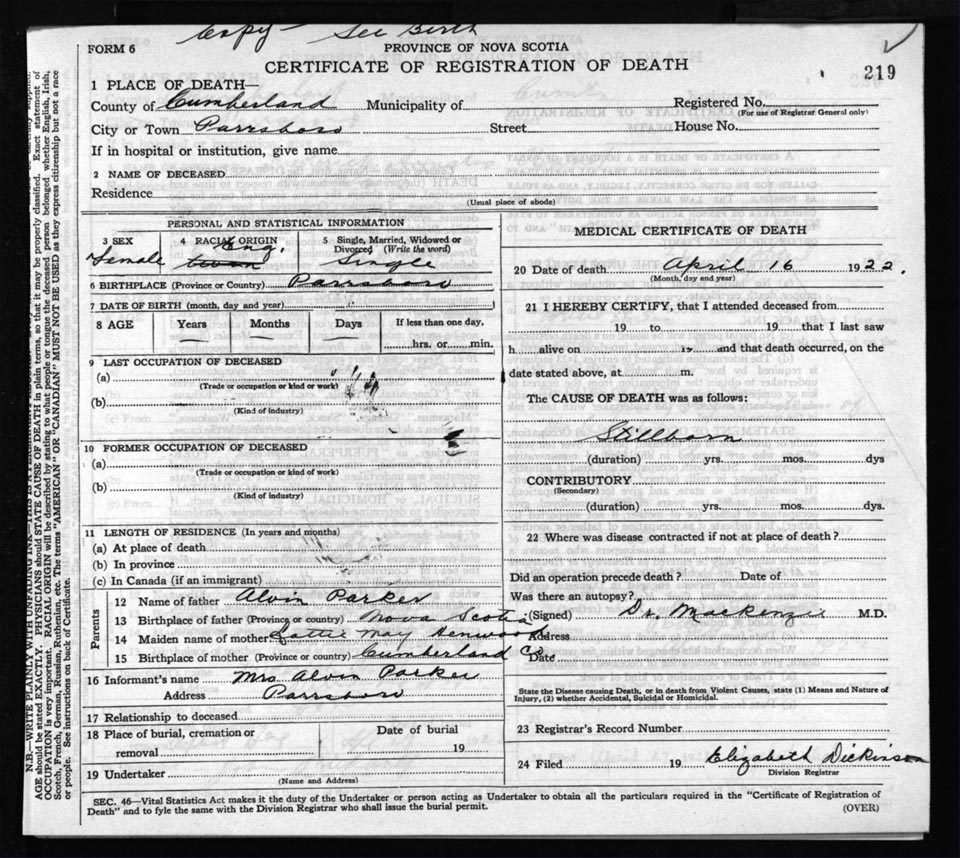 Copy - See Birth
FORM 6
PROVINCE OF NOVA SCOTIA
CERTIFICATE OF REGISTRATION OF DEATH
219
1 PLACE OF DEATH—
County of Cumberland Municipality of Registered No.
(For use of Registrar General only)
City or Town Parrsboro Street House No.
If in hospital or institution, give name
2 NAME OF DECEASED
Residence
(Usual place of abode)
PERSONAL AND STATISTICAL INFORMATION
3 SEX 4 RACIAL ORIGIN 5 Single, Married, Widowed or Divorced (Write the word)
Female Eng. Single
6 BIRTHPLACE (Province or Country) Parrsboro
7 DATE OF BIRTH (month, day and year)
8 AGE Years Months Days If less than one day,
hrs. or min.
9 LAST OCCUPATION OF DECEASED
(a)
(Trade or occupation or kind of work)
(b)
(Kind of industry)
10 FORMER OCCUPATION OF DECEASED
(a)
(Trade or occupation or kind of work)
(b)
(Kind of industry)
11 LENGTH OF RESIDENCE (In years and months)
(a) At place of death
(b) In province
(c) In Canada (if an immigrant)
Parents
12 Name of father Alvin Parker
13 Birthplace of father (Province or country) Nova Scotia
14 Maiden name of mother Lottie May Henwood
15 Birthplace of mother (Province or country) Cumberland Co
16 Informant's name Mrs Alvin Parker
Address Parrsboro
17 Relationship to deceased
18 Place of burial, cremation or removal Date of burial
19
19 Undertaker
(Name and Address)
MEDICAL CERTIFICATE OF DEATH
20 Date of death April 16 1922.
(Month, day and year)
21 I HEREBY CERTIFY, that I attended deceased from
19 to 19 that I last saw
h alive on 19 and that death occurred, on the
date stated above, at m.
The CAUSE OF DEATH was as follows:
Stillborn
(duration) yrs. mos. dys
CONTRIBUTORY
(Secondary)
(duration) yrs. mos. dys.
22 Where was disease contracted if not at place of death?
Did an operation precede death? Date of
Was there an autopsy?
(Signed) Dr. Mackenzie M.D.
Address
Date
State the Disease causing Death, or in death from Violent Causes, state (1) Means and Nature of
Injury, (2) whether Accidental, Suicidal or Homicidal.
23 Registrar's Record Number
24 Filed 19 Elizabeth Dickinson
Division Registrar
SEC. 46—Vital Statistics Act makes it the duty of the Undertaker or person acting as Undertaker to obtain all the particulars required in the "Certificate of Registration of
Death" and to fyle the same with the Division Registrar who shall issue the burial permit.
(OVER)
N.B.—WRITE PLAINLY WITH UNFADING INK—THIS
AGE should be stated EXACTLY. PHYSICIANS should STATE CAUSE OF DEATH in plain terms, so that it may be properly classified. Exact statement of
OCCUPATION is very important. RACIAL ORIGIN will be described by stating to what people or tongue the deceased person belonged, whether English, Irish,
Scotch, French, German, Russian, Ruthenian, etc. The terms "AMERICAN" OR "CANADIAN" MUST NOT BE USED as they express citizenship but not a race
or people. See instructions on back of Certificate.